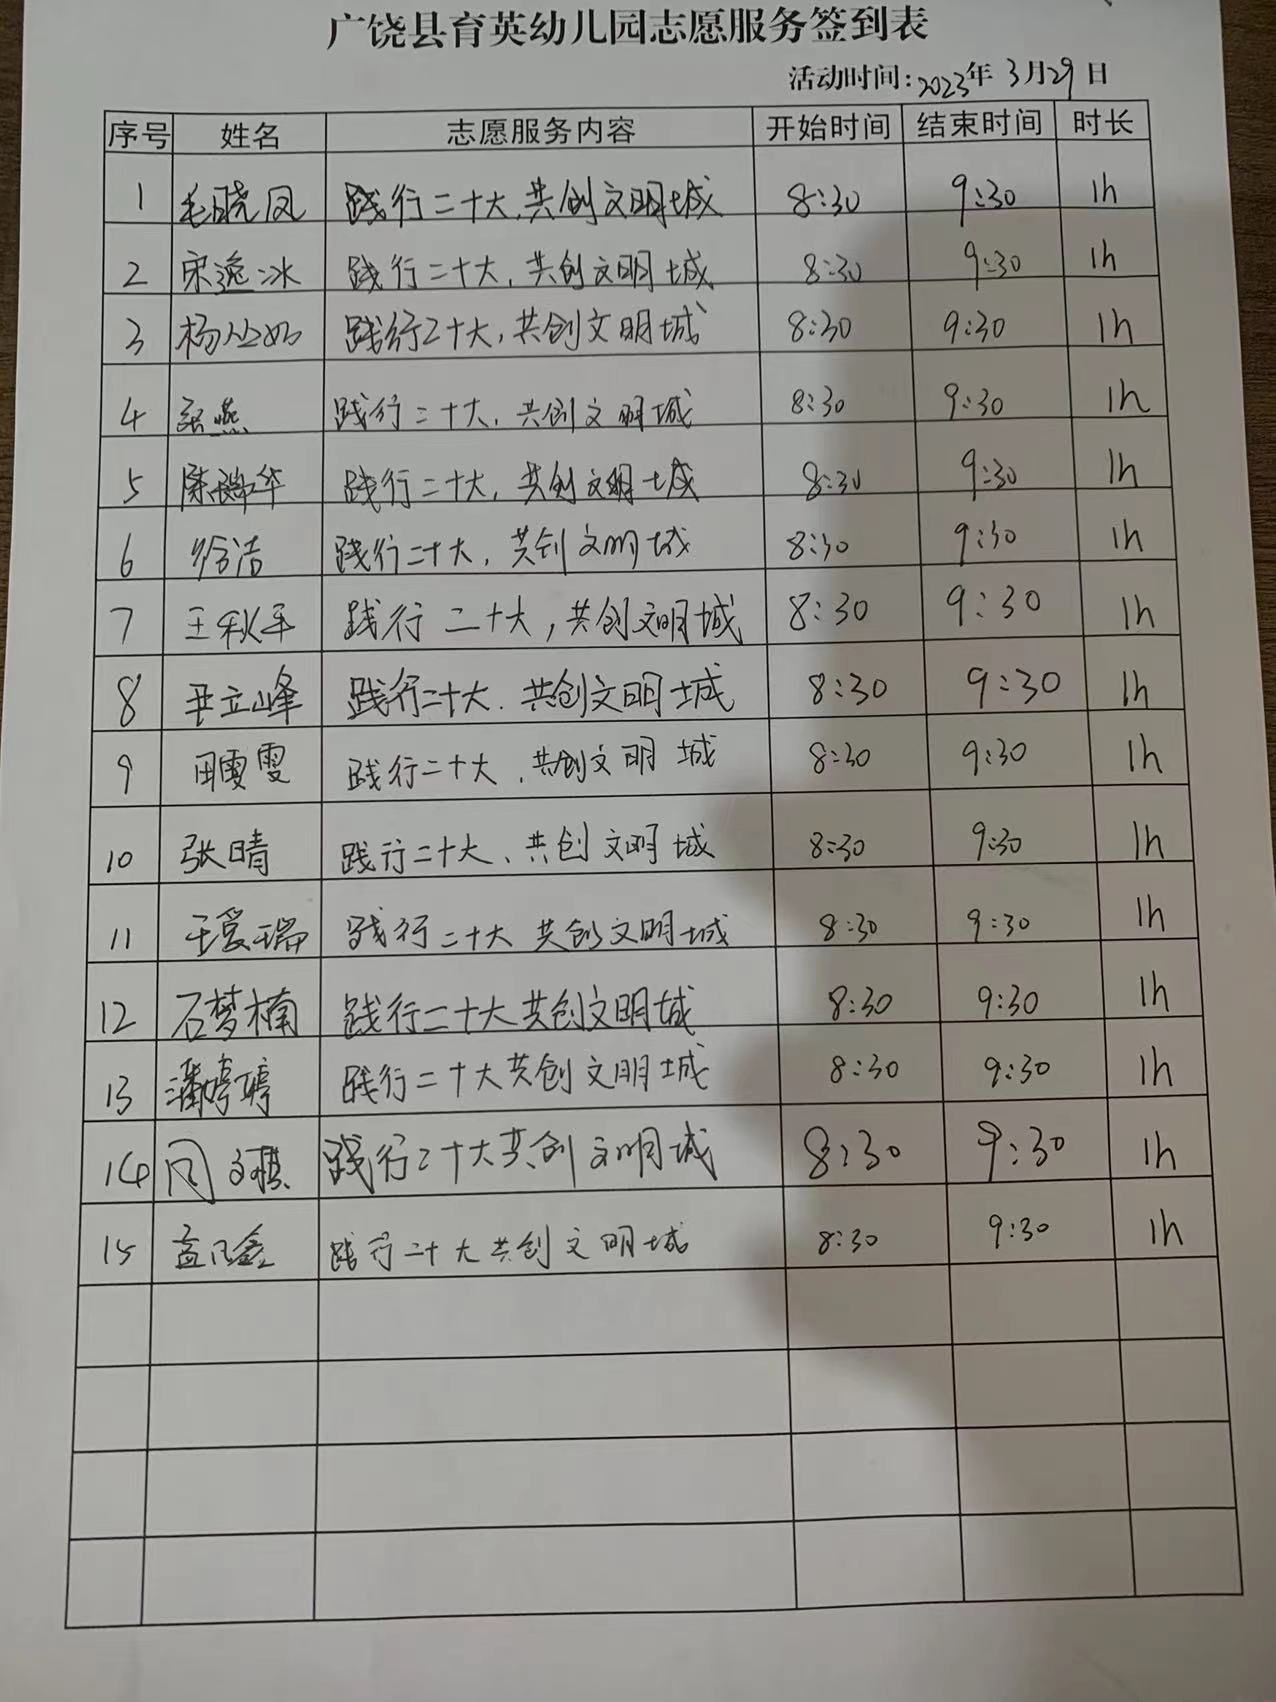 广饶县育英幼儿园志愿服务签到表
活动时间:2023年 3月29日
序号 姓名 志愿服务内容 开始时间 结束时间 时长
1 毛晓凤 践行二十大,共创文明城 8:30 9:30 1h
2 宋逸冰 践行二十大,共创文明城 8:30 9:30 1h
3 杨丛如 践行二十大,共创文明城 8:30 9:30 1h
4 燕 践行二十大,共创文明城 8:30 9:30 1h
5 陈瑞华 践行二十大,共创文明城 8:30 9:30 1h
6 徐洁 践行二十大,共创文明城 8:30 9:30 1h
7 王秋平 践行二十大,共创文明城 8:30 9:30 1h
8 立峰 践行二十大.共创文明城 8:30 9:30 1h
9 田雯雯 践行二十大,共创文明城 8:30 9:30 1h
10 张晴 践行二十大、共创文明城 8:30 9:30 1h
11 王爱瑞 践行二十大 共创文明城 8:30 9:30 1h
12 石梦楠 践行二十大共创文明城 8:30 9:30 1h
13 潘婷婷 践行二十大共创文明城 8:30 9:30 1h
14 周 践行二十大共创文明城 8:30 9:30 1h
15 孟凡鑫 践行二十大共创文明城 8:30 9:30 1h